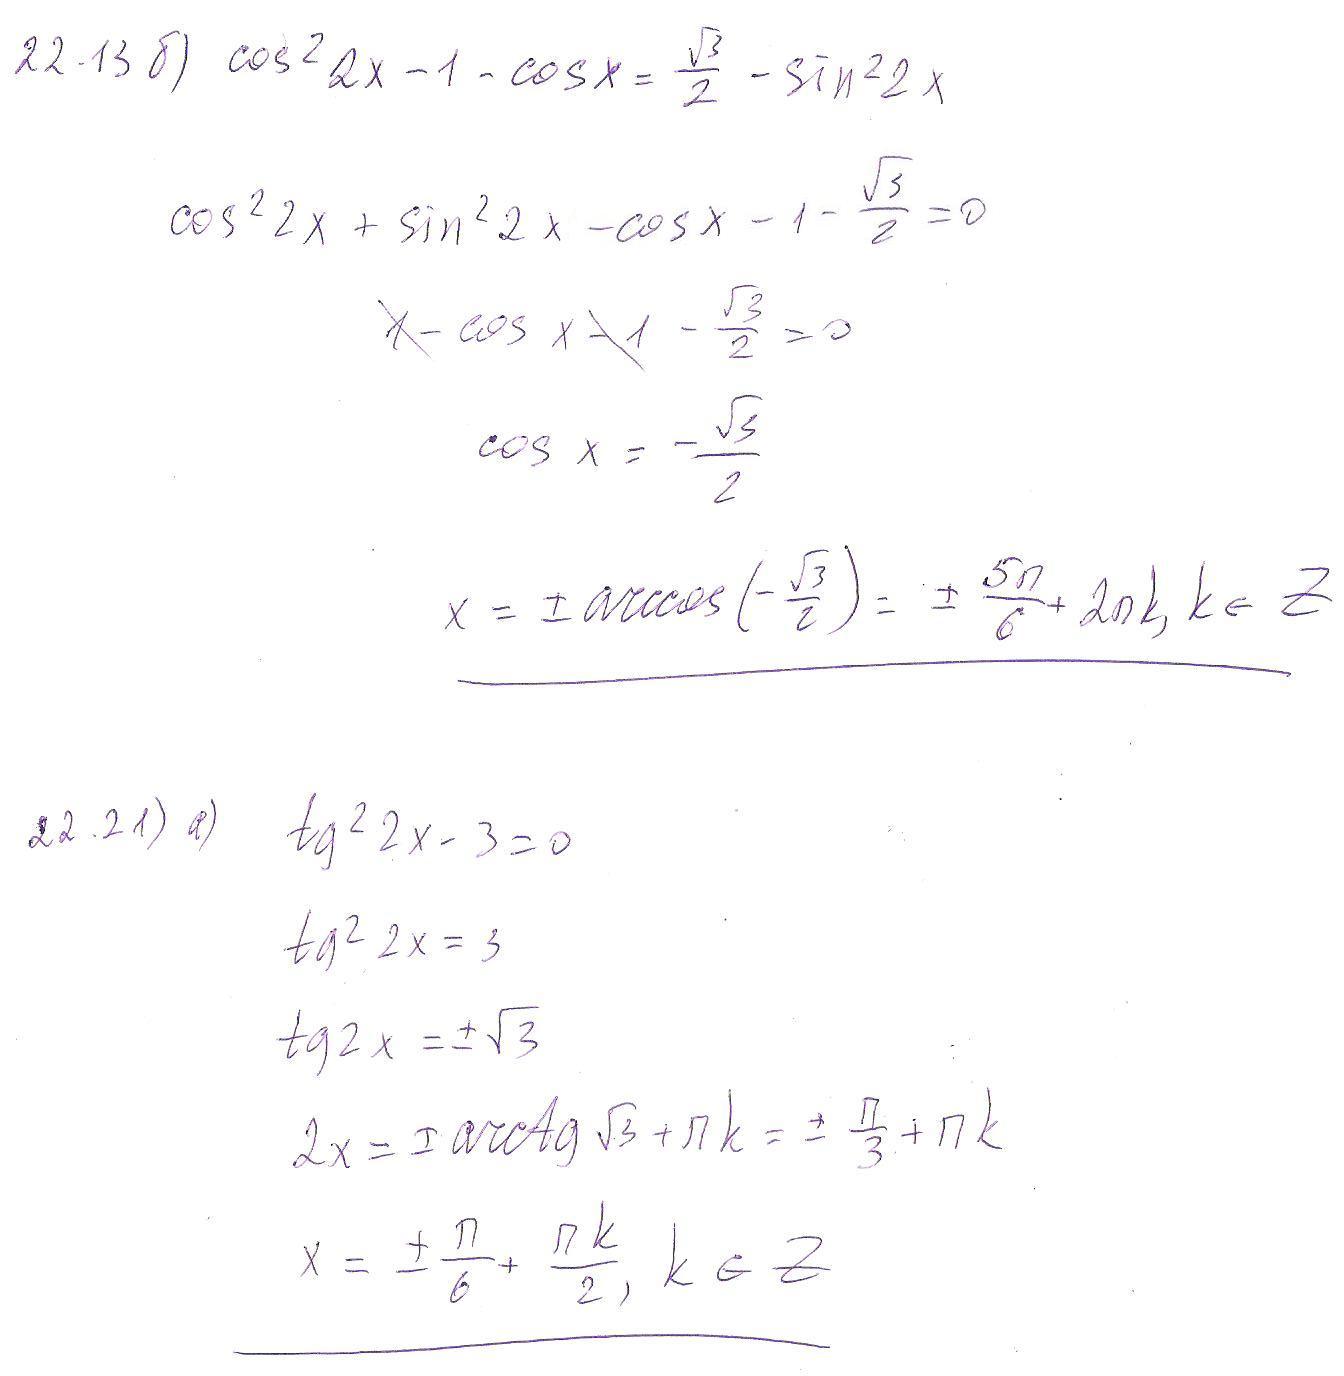 22.13 б) cos² 2x - 1 - cos x = √3/2 - sin² 2x
cos² 2x + sin² 2x - cos x - 1 - √3/2 = 0
1 - cos x - 1 - √3/2 = 0
cos x = - √3/2
x = ± arccos(-√3/2) = ± 5π/6 + 2πk, k ∈ Z
22.21) а) tg² 2x - 3 = 0
tg² 2x = 3
tg 2x = ±√3
2x = ± arctg √3 + πk = ± π/3 + πk
x = ± π/6 + πk/2, k ∈ Z